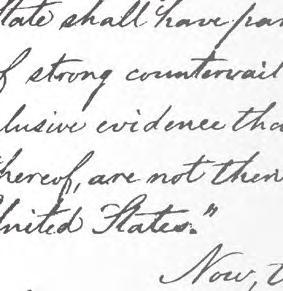 State shall have par
f strong countervail
lusive evidence tha
thereof, are not then
United States."
Now, t